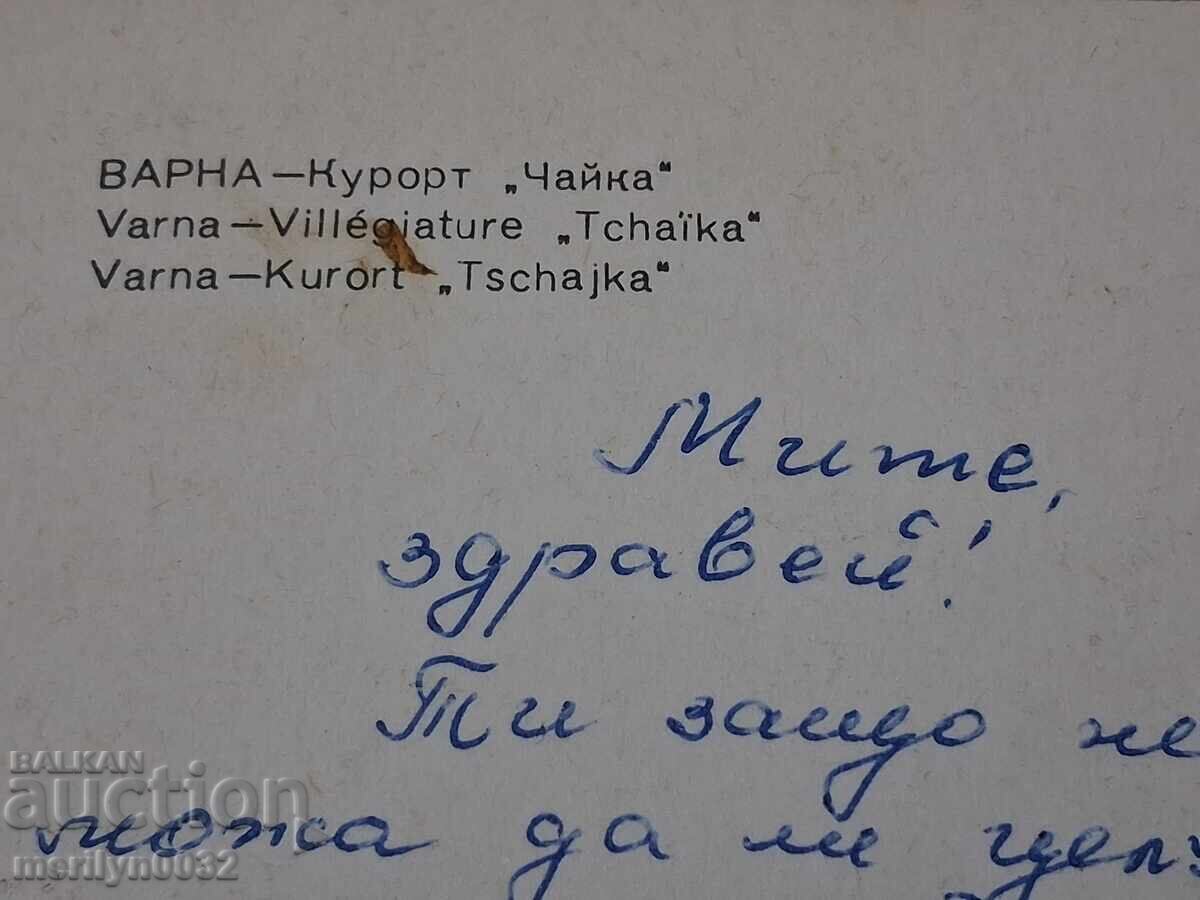 ВАРНА—Курорт „Чайка“
Varna—Villégiature „Tchaïka“
Varna—Kurort „Tschajka“
Мите,
здравей!
Ти защо не
можа да ми
BALKAN
auction
merilyn0032